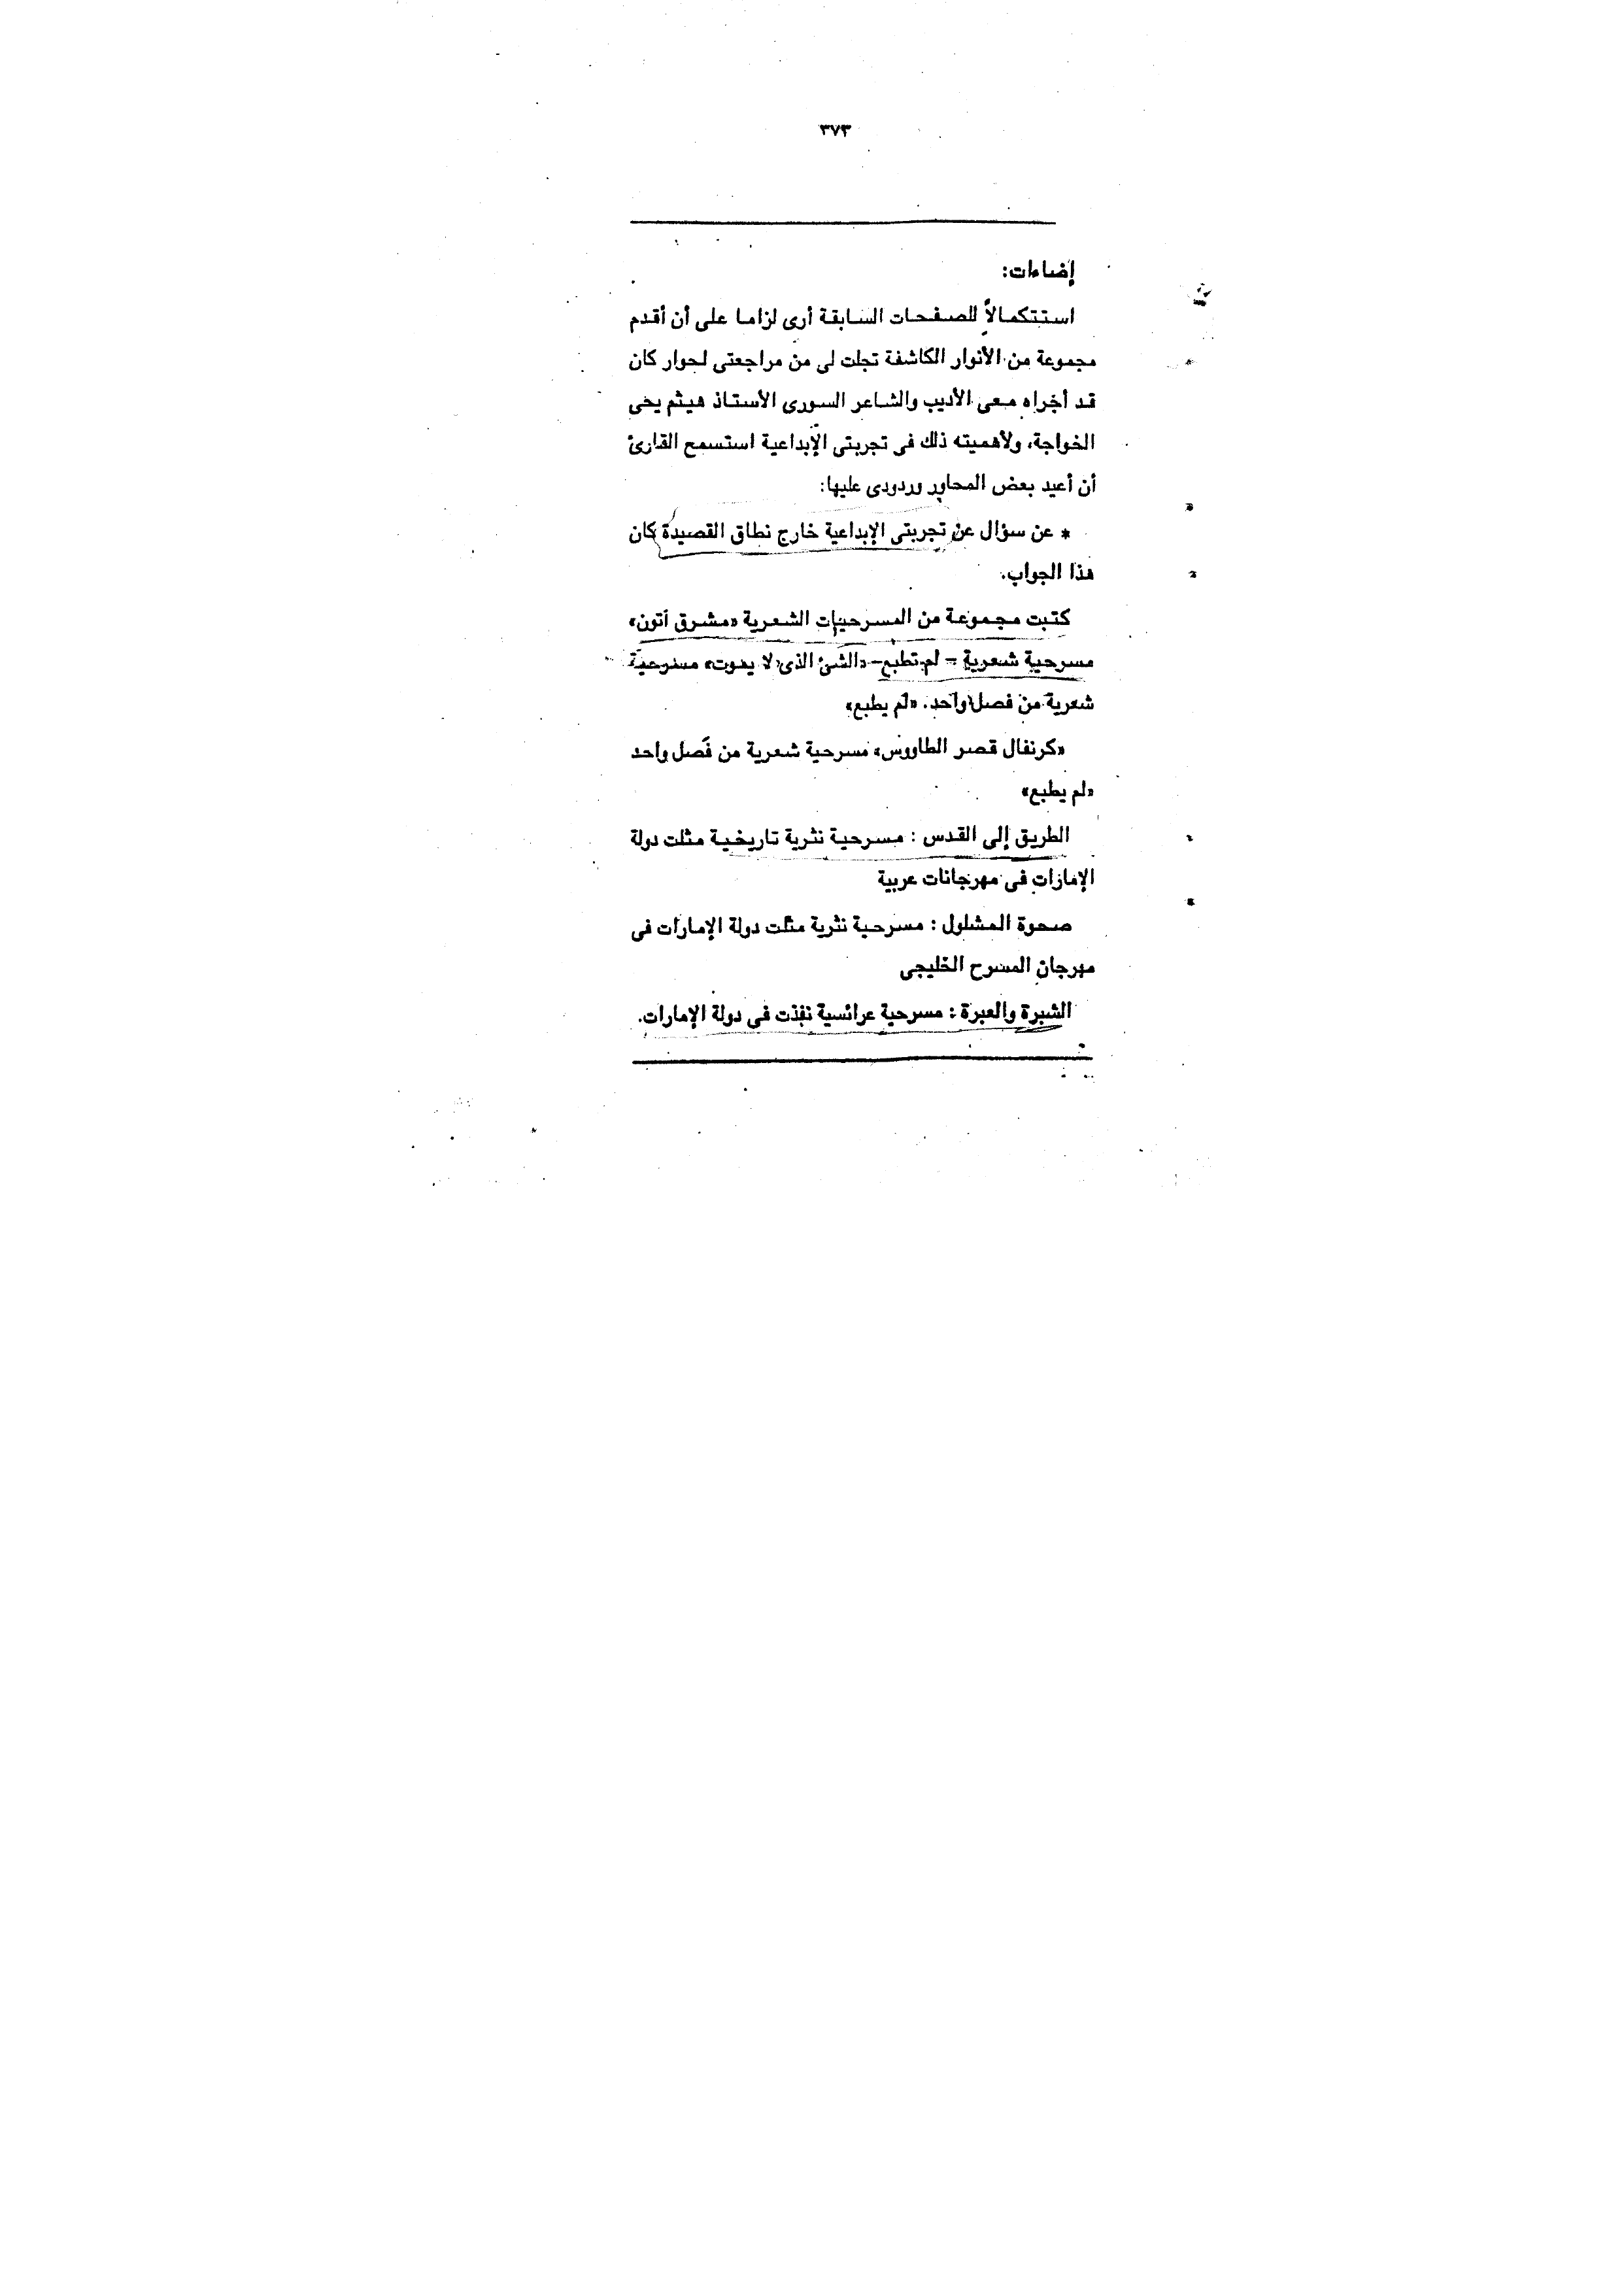 ٣٧٣
إضاءات:
استتكمالاً للصفحات السابقة أرى لزاما على أن أقدم
مجموعة من الأنوار الكاشفة تجلت لى من مراجعتى لحوار كان
قد أجراه معى الأديب والشاعر السورى الأستاذ هيثم يحى
الخواجة، ولأهميته ذلك فى تجربتى الإبداعية استسمح القارئ
أن أعيد بعض المحاور وردودى عليها:
* عن سؤال عن تجربتى الإبداعية خارج نطاق القصيدة كان
هذا الجواب.
كتبت مجموعة من المسرحيات الشعرية «مشرق أتون»
مسرحية شعرية - لم تطبع - «الشئ الذى لا يموت» مسرحية
شعرية من فصل واحد. «لم يطبع»
«كرنفال قصر الطاووس» مسرحية شعرية من فصل واحد
«لم يطبع»
الطريق إلى القدس : مسرحية نثرية تاريخية مثلت دولة
الإمارات فى مهرجانات عربية
صحوة المشلول : مسرحية نثرية مثلت دولة الإمارات فى
مهرجان المسرح الخليجى
الشبرة والعبرة : مسرحية عرائسية نفذت فى دولة الإمارات.